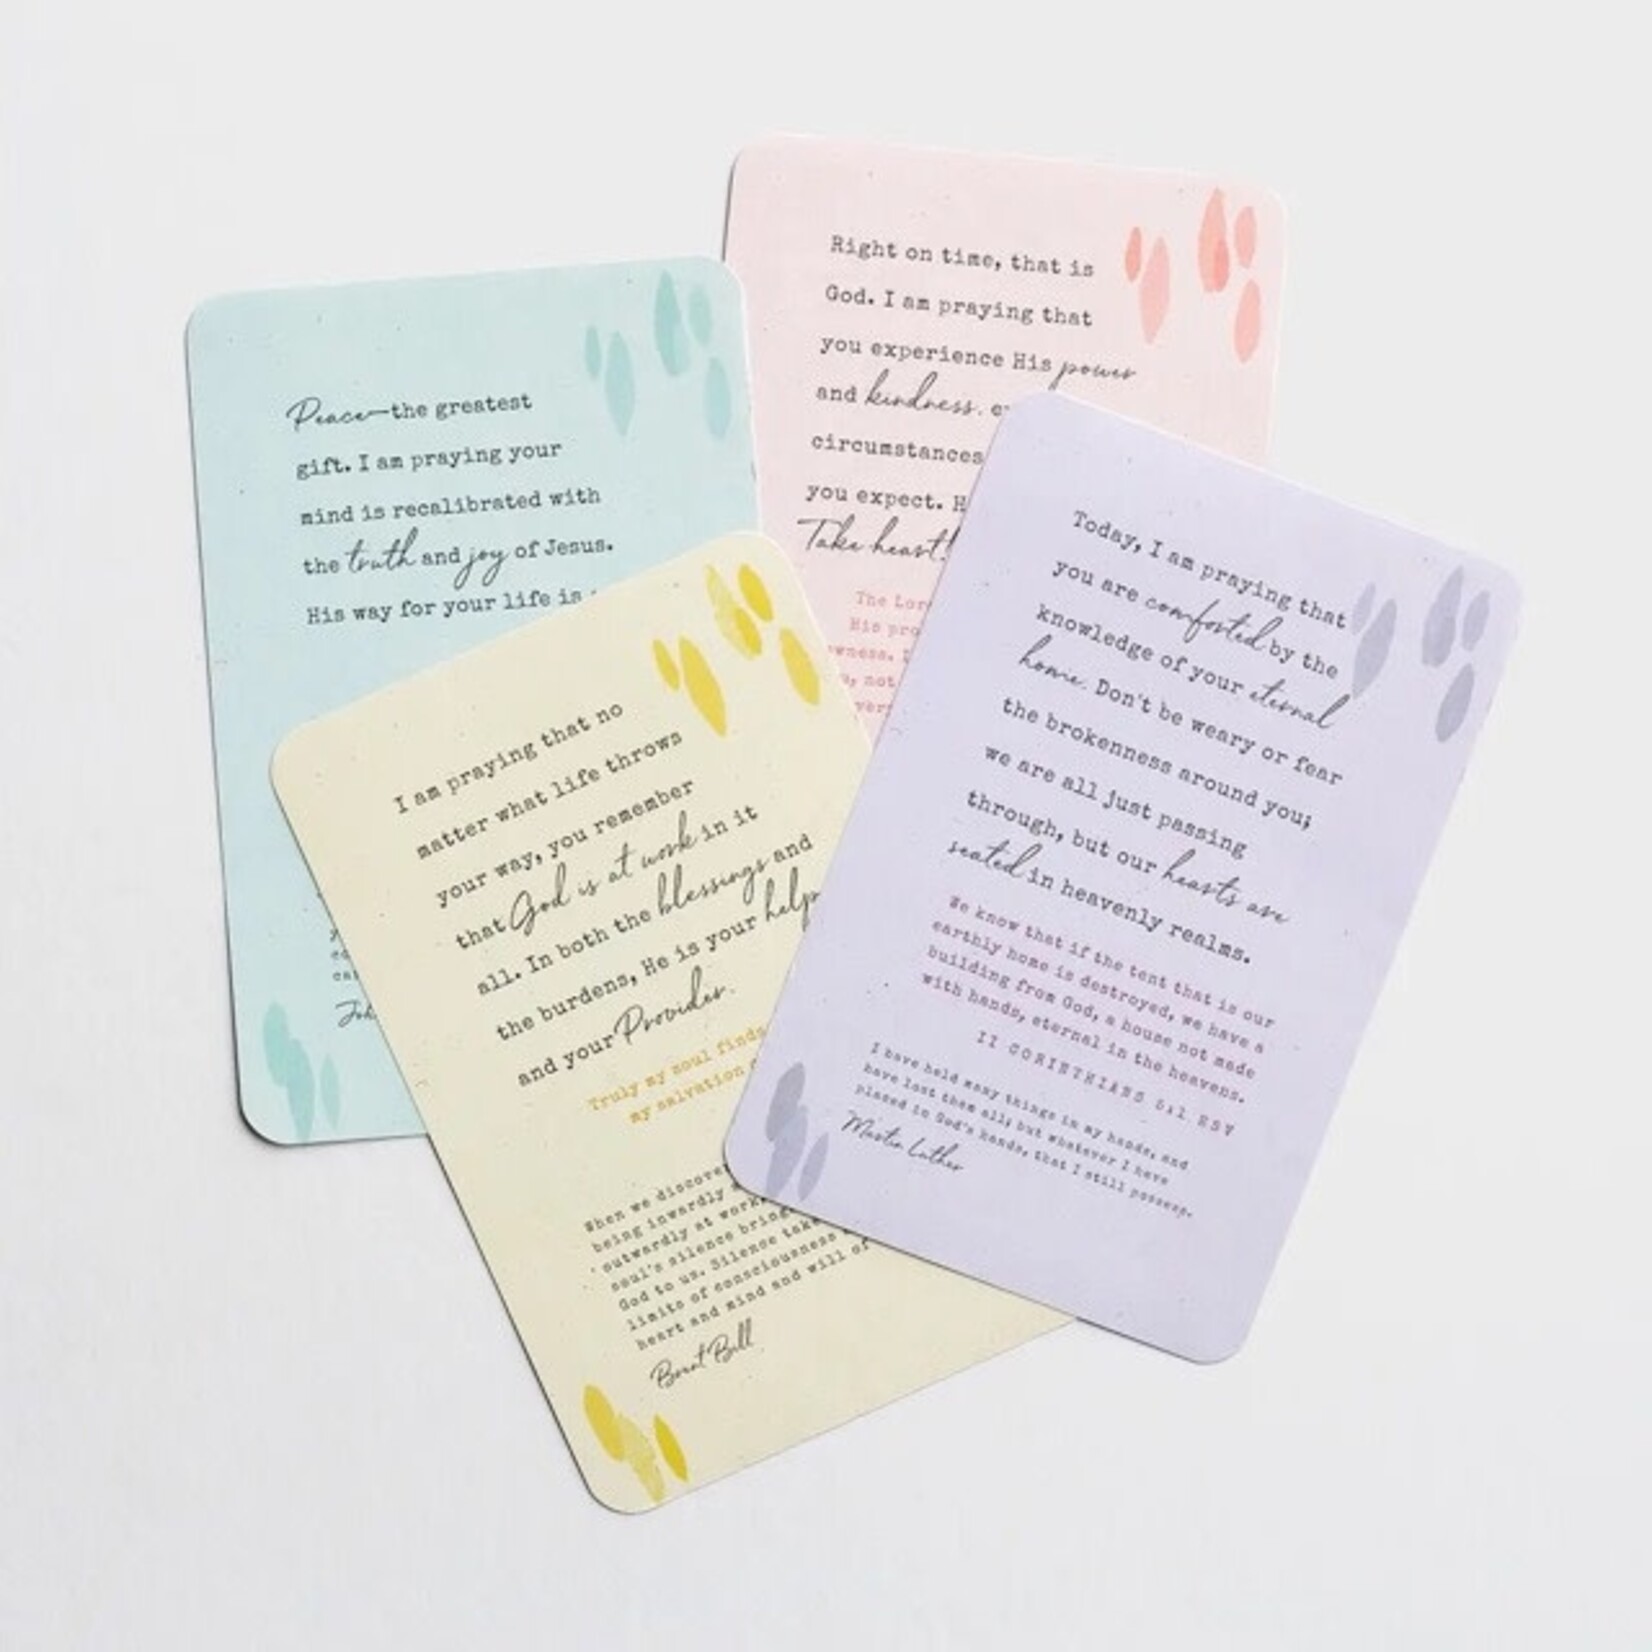 Peace—the greatest
gift. I am praying your
mind is recalibrated with
the truth and joy of Jesus.
His way for your life is
Right on time, that is
God. I am praying that
you experience His power
and kindness.
circumstances
you expect.
Take heart!
The Lor
His pro
not
I am praying that no
matter what life throws
your way, you remember
that God is at work in it
all. In both the blessings and
the burdens, He is your help
and your Provider.
Truly my soul finds
my salvation
When we discover
being inwardly
outwardly at work
soul's silence bring
God to us. Silence take
limits of consciousness
heart and mind and will of
Brent Bill
Today, I am praying that
you are comforted by the
knowledge of your eternal
home. Don't be weary or fear
the brokenness around you;
we are all just passing
through, but our hearts are
seated in heavenly realms.
We know that if the tent that is our
earthly home is destroyed, we have a
building from God, a house not made
with hands, eternal in the heavens.
II CORINTHIANS 5:1 ESV
I have held many things in my hands, and
have lost them all; but whatever I have
placed in God's hands, that I still possess.
Martin Luther